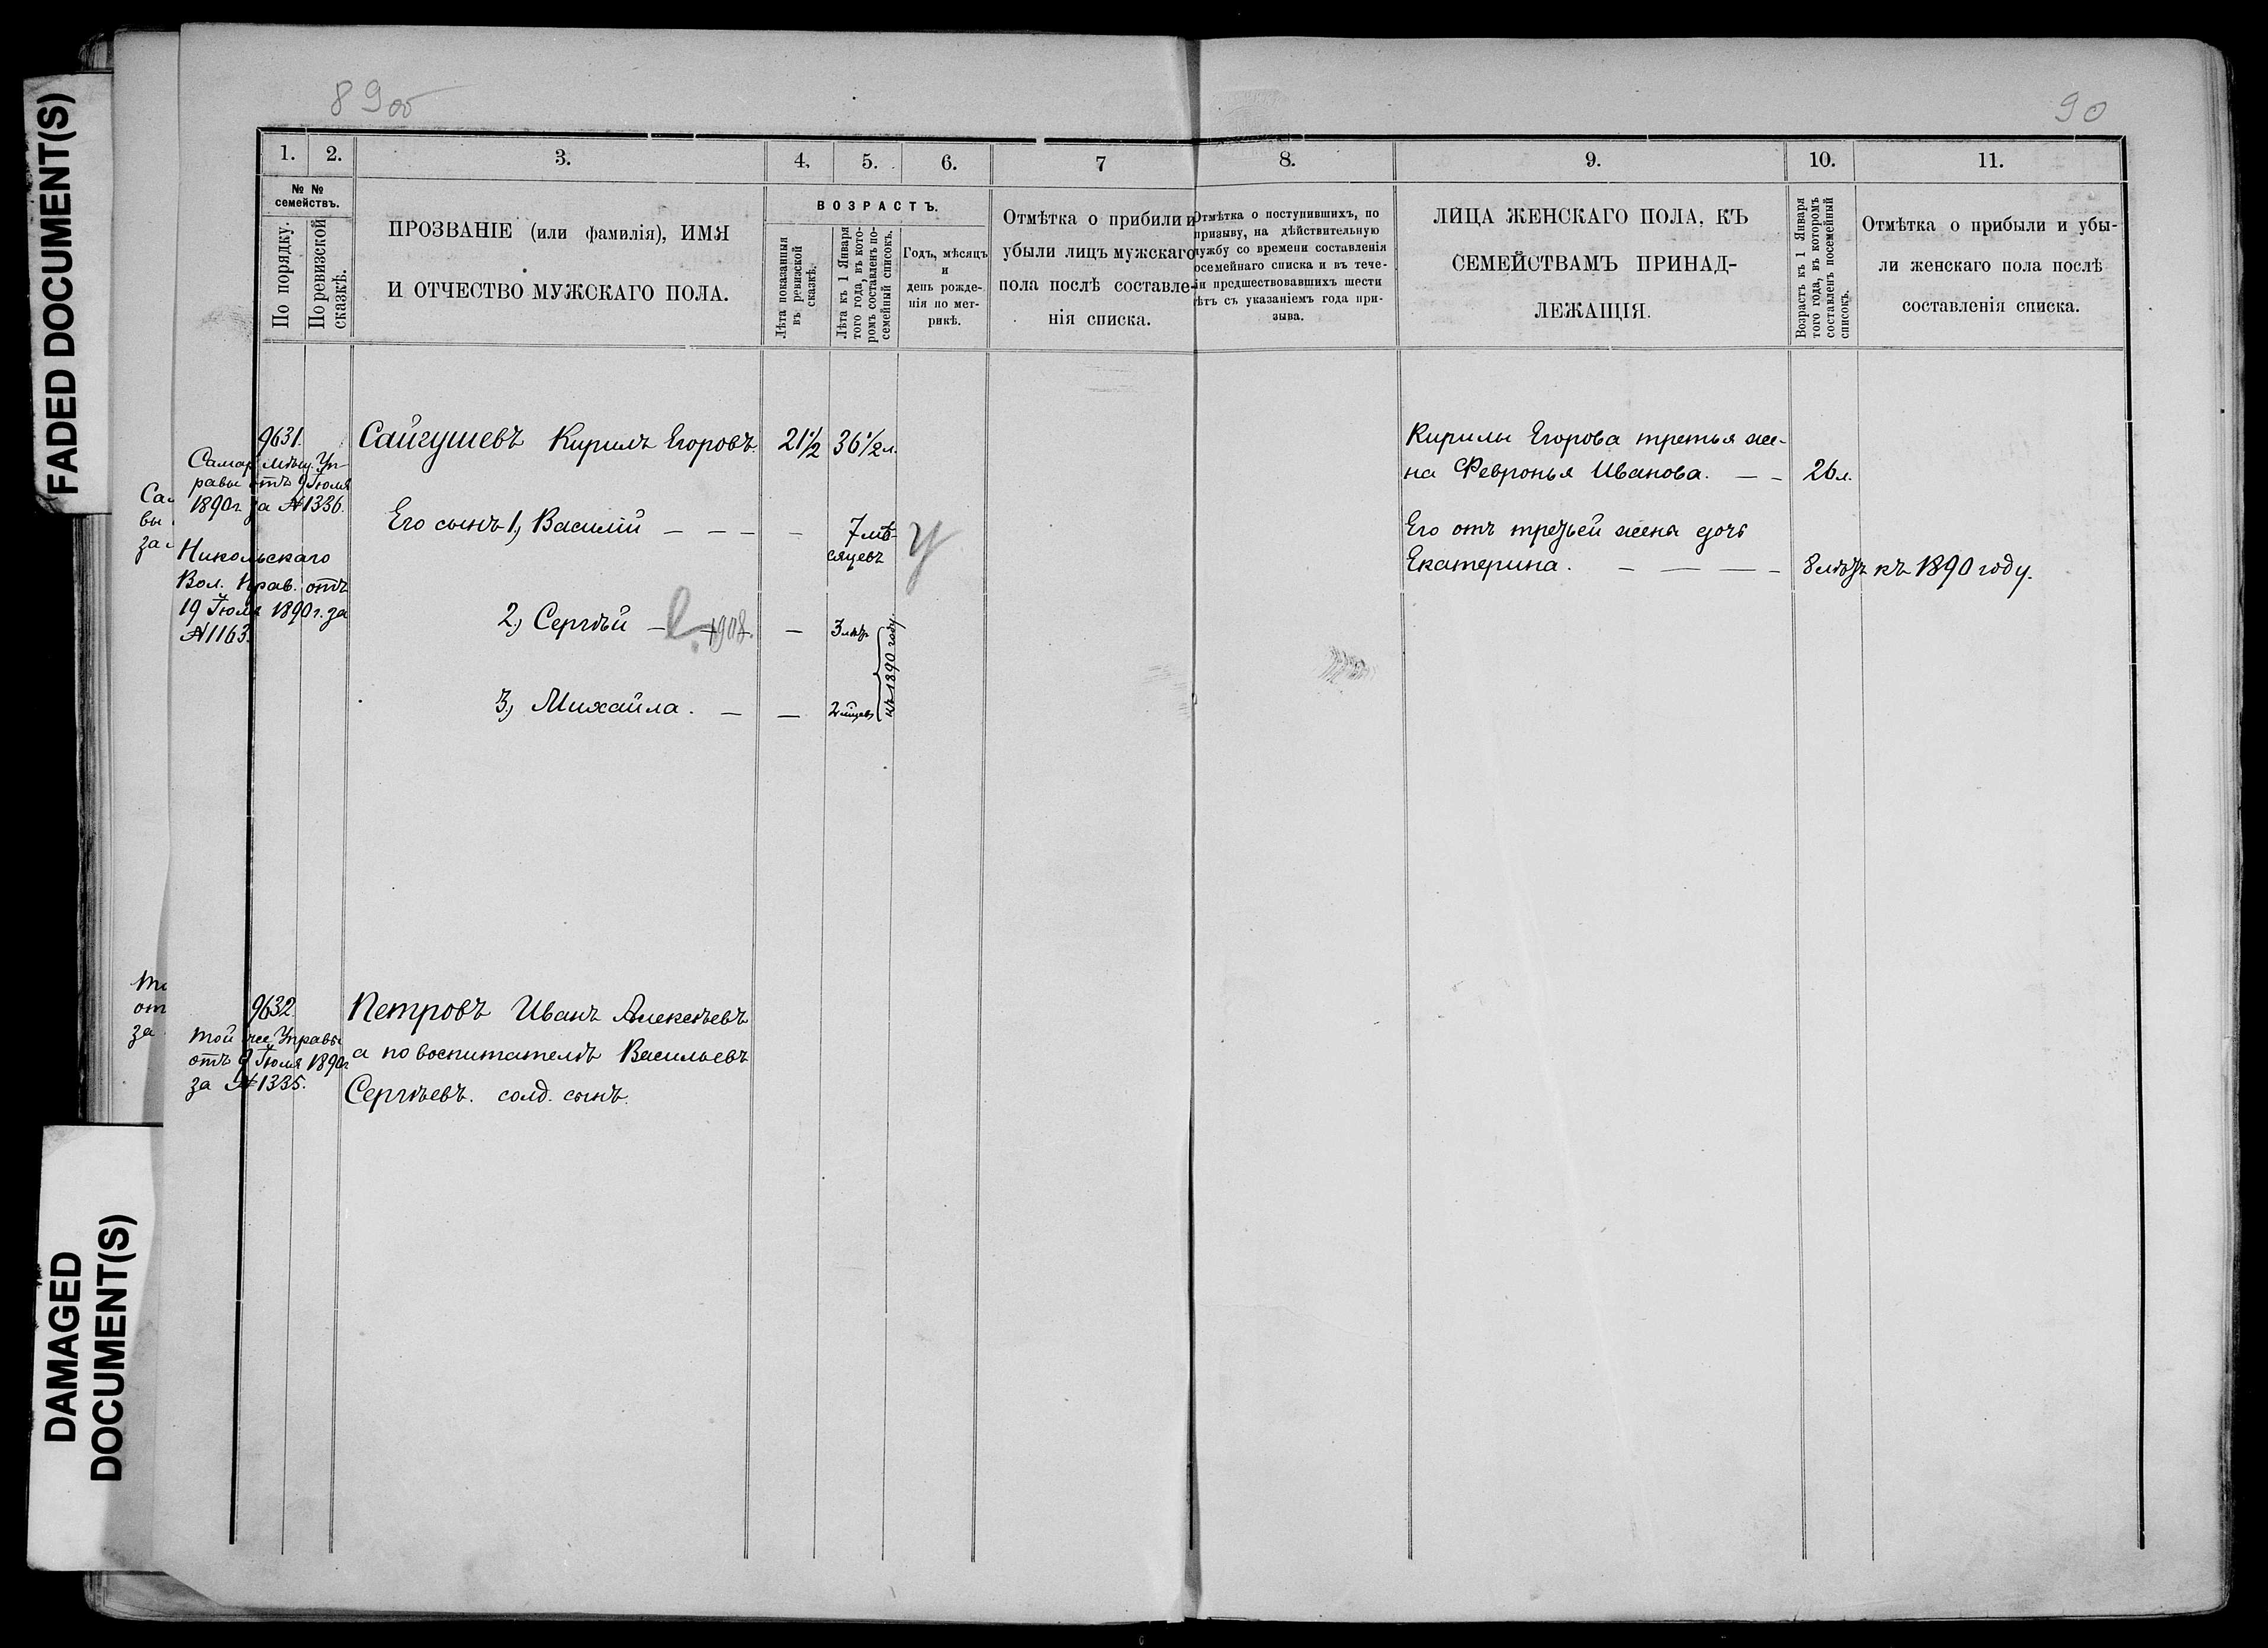 FADED DOCUMENT(S)
DAMAGED
DOCUMENT(S)
89об
90
1.
2.
3.
4.
5.
6.
7
8.
9.
10.
11.
№ №
семействъ.
По порядку.
По ревизской
сказкѣ.
ПРОЗВАНІЕ (или фамилія), ИМЯ
И ОТЧЕСТВО МУЖСКАГО ПОЛА.
ВОЗРАСТЪ.
Лѣта показанныя
въ ревизской
сказкѣ.
Лѣта къ 1 Января
того года, въ кото-
ромъ составленъ по-
семейный списокъ.
Годъ, мѣсяцъ
и
день рожде-
нія по мет-
рикѣ.
Отмѣтка о прибыли и
убыли лицъ мужскаго
пола послѣ составле-
нія списка.
Отмѣтка о поступившихъ, по
призыву, на дѣйствительную
лужбу со времени составленія
осемейнаго списка и въ тече-
іи предшествовавшихъ шести
ѣтъ съ указаніемъ года при-
зыва.
ЛИЦА ЖЕНСКАГО ПОЛА, КЪ
СЕМЕЙСТВАМЪ ПРИНАД-
ЛЕЖАЩІЯ.
Возрастъ къ 1 Января
того года, въ которомъ
составленъ посемейный
списокъ.
Отмѣтка о прибыли и убы-
ли женскаго пола послѣ
составленія списка.
9631.
Самар. Мѣщ. Уп-
равы отъ 9 Іюля
1890г. за №1336.
Никольскаго
Вол. Прав. отъ
19 Іюля 1890г. за
№1163.
Сайгушевъ Кирилъ Егоровъ. 21½ 36½ л.
Его сынъ 1, Василій — — — — 7 мѣ-
сяцевъ
У
2, Сергѣй — 1908. — 3 лѣтъ
3, Михайла. — — 2 мѣцевъ
къ 1890 году.
Кирилы Егорова третья же-
на Февронья Иванова. — — 26 л.
Его отъ третьей жены дочь
Екатерина. — — — — 8 лѣтъ къ 1890 году.
9632.
Той же Управы
отъ 9 Іюля 1890г
за №1335.
Петровъ Иванъ Алексѣевъ
а по воспитателѣ Васильевъ
Сергѣевъ. солд. сынъ.
Сам
вы
за
от
за